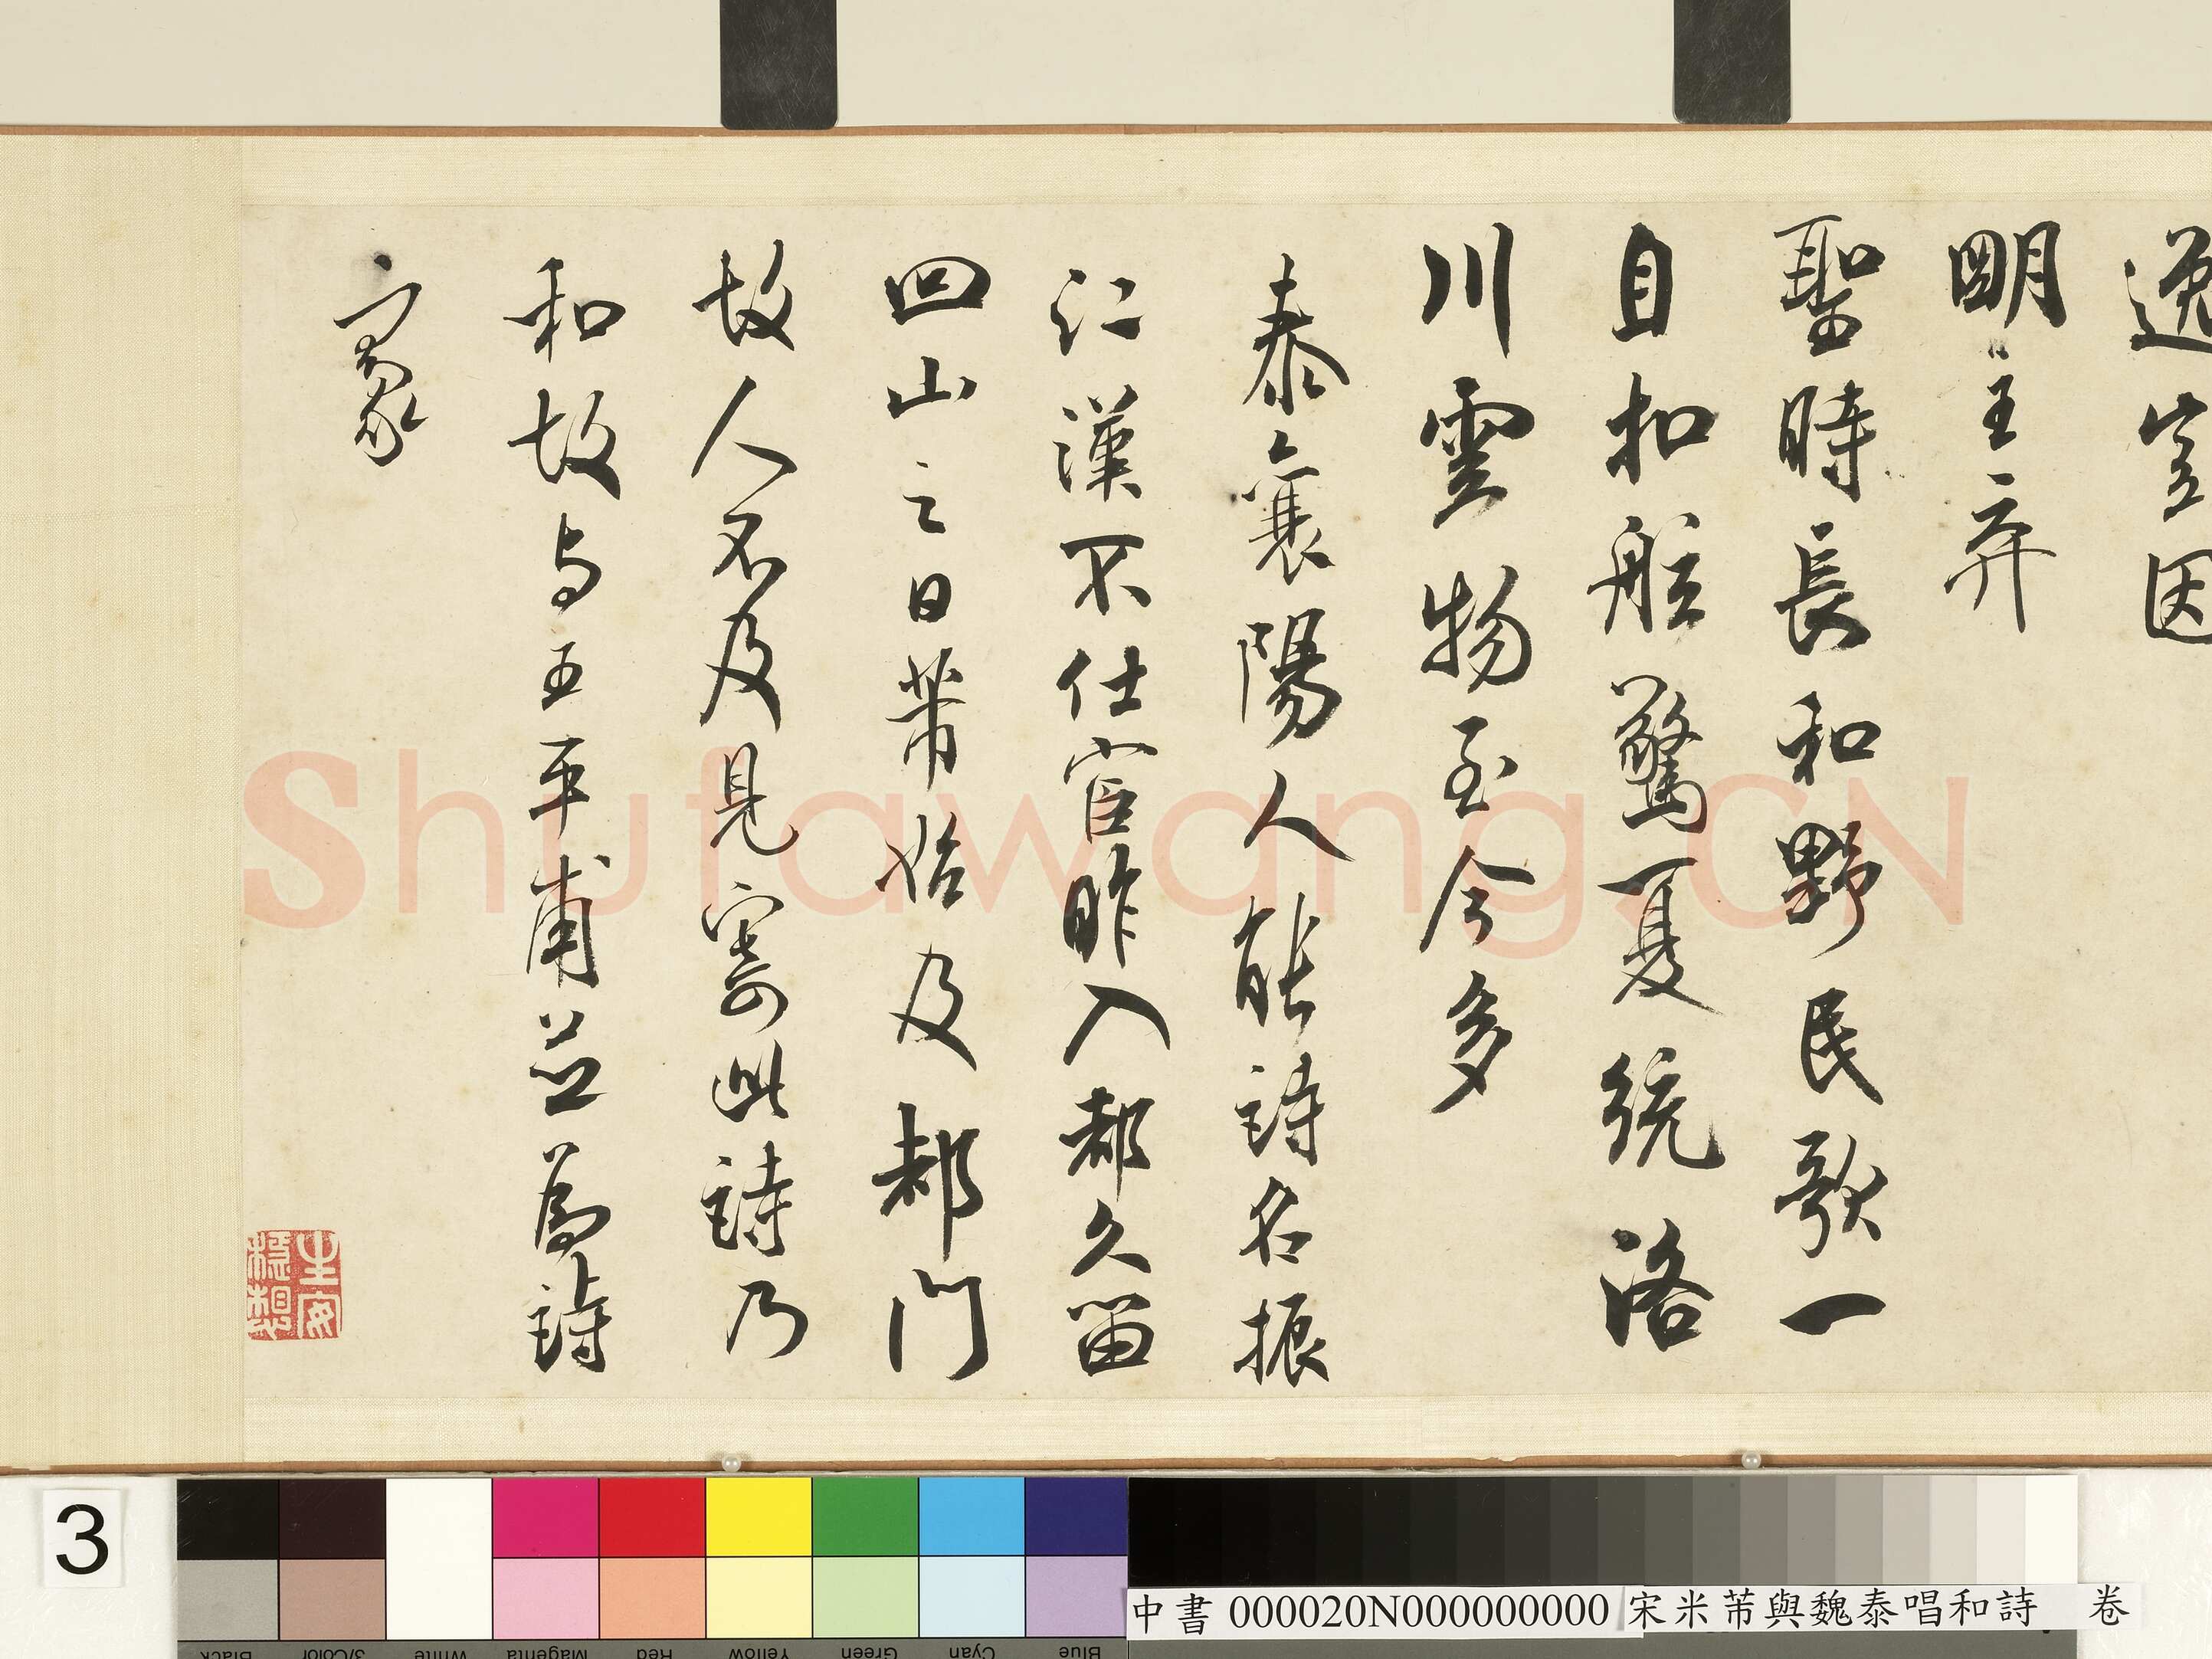 逸實因
明主弃
聖時長和野民歌一
自扣舷驚夏統洛
川雲物至今多
泰襄陽人能詩名振
江漢不仕宦昨入都久留
四山之日芾始及都門
故人不及見寄此詩乃
和故與王平甫並為詩
豪
Shufawang.CN
3
中書 000020N000000000 宋米芾與魏泰唱和詩 卷
Black
3/Color
White
Magenta
Red
Yellow
Green
Cyan
Blue